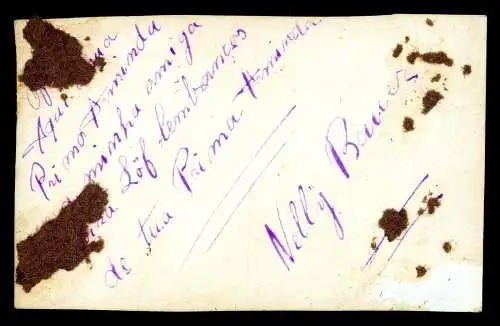 Aqui
Prima Arminda
minha amiga
Löf lembrances
de tua Prima Arminda.
Nelly Bauer